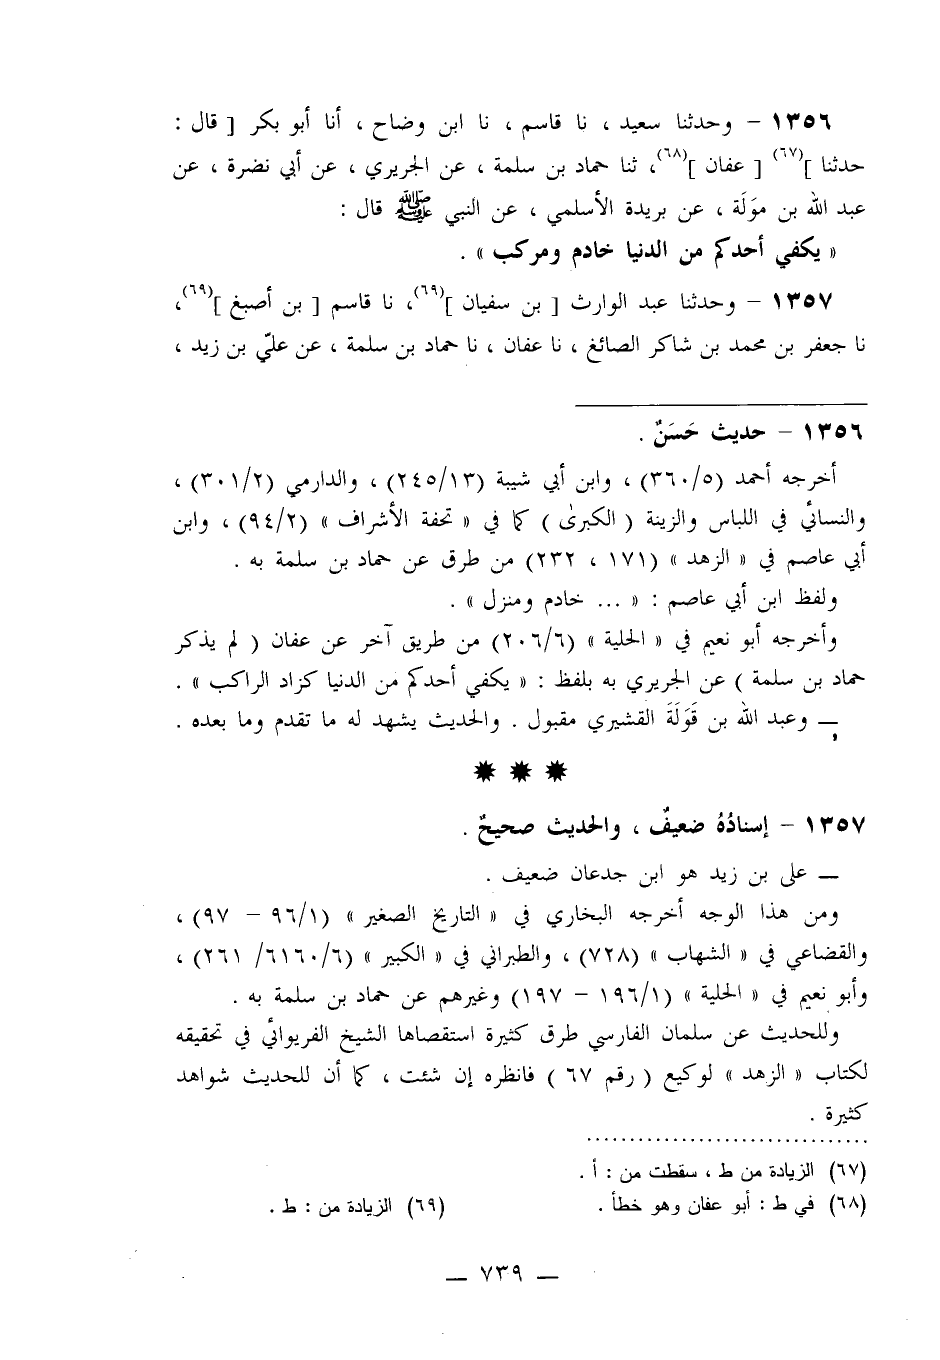 ١٣٥٦ – وحدثنا سعيد ، نا قاسم ، نا ابن وضاح ، أنا أبو بكر [ قال :
حدثنا ](٦٧) [ عفان ](٦٨)، ثنا حماد بن سلمة ، عن الجريري ، عن أبي نضرة ، عن
عبد الله بن موَلَة ، عن بريدة الأسلمي ، عن النبي ﷺ قال :
« يكفي أحدكم من الدنيا خادم ومركب » .
١٣٥٧ – وحدثنا عبد الوارث [ بن سفيان ](٦٩)، نا قاسم [ بن أصبغ ](٦٩)،
نا جعفر بن محمد بن شاكر الصائغ ، نا عفان ، نا حماد بن سلمة ، عن عليّ بن زيد ،
١٣٥٦ – حديث حَسَنٌ .
أخرجه أحمد (٣٦٠/٥) ، وابن أبي شيبة (٢٤٥/١٣) ، والدارمي (٣٠١/٢) ،
والنسائي في اللباس والزينة ( الكبرىٰ ) كما في « تحفة الأشراف » (٩٤/٢) ، وابن
أبي عاصم في « الزهد » (١٧١ ، ٢٣٢) من طرق عن حماد بن سلمة به .
ولفظ ابن أبي عاصم : « ... خادم ومنزل » .
وأخرجه أبو نعيم في « الحلية » (٢٠٦/٦) من طريق آخر عن عفان ( لم يذكر
حماد بن سلمة ) عن الجريري به بلفظ : « يكفي أحدكم من الدنيا كزاد الراكب » .
— وعبد الله بن قَوَلَةَ القشيري مقبول . والحديث يشهد له ما تقدم وما بعده .
١٣٥٧ – إسنادُهُ ضعيفٌ ، والحديث صحيحٌ .
— على بن زيد هو ابن جدعان ضعيف .
ومن هذا الوجه أخرجه البخاري في « التاريخ الصغير » (٩٦/١ – ٩٧) ،
والقضاعي في « الشهاب » (٧٢٨) ، والطبراني في « الكبير » (٦١٦٠/٦/ ٢٦١) ،
وأبو نعيم في « الحلية » (١٩٦/١ – ١٩٧) وغيرهم عن حماد بن سلمة به .
وللحديث عن سلمان الفارسي طرق كثيرة استقصاها الشيخ الفريوائي في تحقيقه
لكتاب « الزهد » لوكيع ( رقم ٦٧ ) فانظره إن شئت ، كما أن للحديث شواهد
كثيرة .
(٦٧) الزيادة من ط ، سقطت من : أ .
(٦٨) في ط : أبو عفان وهو خطأ . (٦٩) الزيادة من : ط .
— ٧٣٩ —